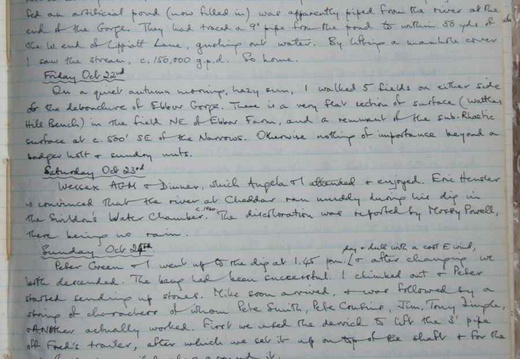 Fed an artificial pond (now filled in) was apparently piped from the river at the
end of the Gorge. They had traced a 9" pipe from the pond to within 50 yds of
the W end of Lippiatt Lane, gushing out water. By lifting a manhole cover
I saw the stream, c. 150,000 g.p.d. So home.
Friday Oct 22nd
On a quiet autumn morning, hazy sun, I walked 5 fields on either side
of the debouchure of Ebbor Gorge. There is a very flat section of surface (Wattles
Hill Bench) in the field NE of Ebbor Farm, and a remnant of the sub-Rhaetic
surface at c. 500' SE of the Narrows. Otherwise nothing of importance beyond a
badger holt & sundry nuts.
Saturday Oct 23rd
Wessex AGM & Dinner, which Angela & I attended & enjoyed. Eric Hensler
is convinced that the river at Cheddar ran muddy during his dig in
the Swildon's Water Chamber. The discoloration was reported by Mossy Powell,
there being no rain.
Sunday Oct 24th
dry & dull with a cool E wind,
Peter Green & I went up to the dig at 1.45 pm / & after changing we
both descended. The bang had been successful. I chinked out & Peter
started sending up stones. Mike soon arrived, & was followed by a
string of characters of whom Pete Smith, Pete Cousins, Jim, Tony Dingle,
& ANOther actually worked. First we used the derrick to lift the 3' pipe
off Fred's trailer, after which we set it up on top of the shaft & for the